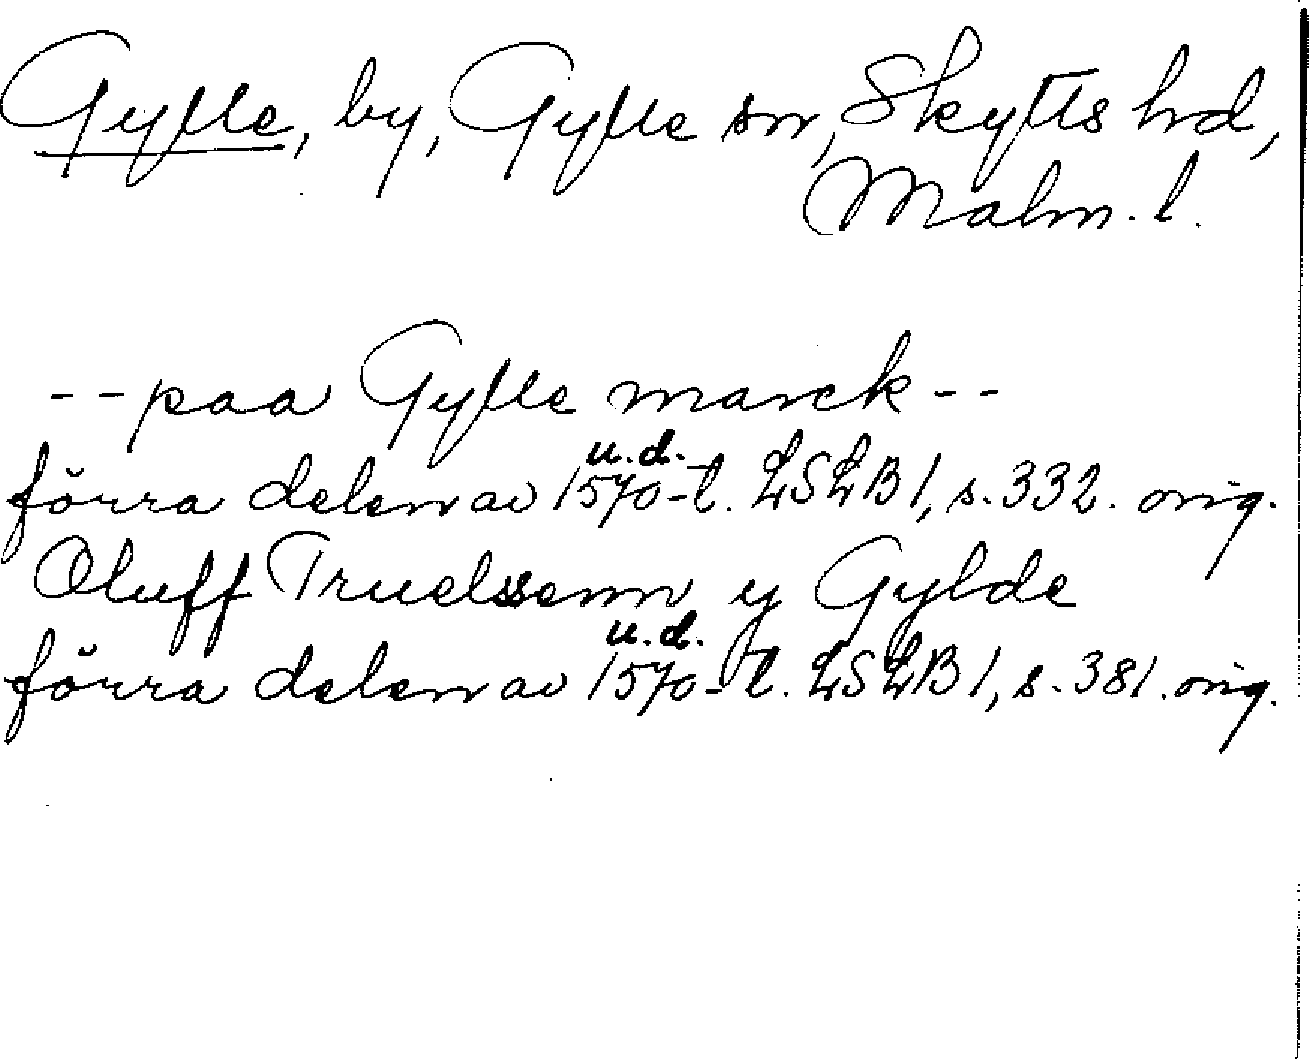 Gylle, by, Gylle sn, Skytts hd,
Malm. l.
-- paa Gylle marck --
förra delen av 1570-t. u.d. LSLB 1, s. 332. orig.
Oluff Truelssenn y Gylde
förra delen av 1570-t. u.d. LSLB 1, s. 381. orig.